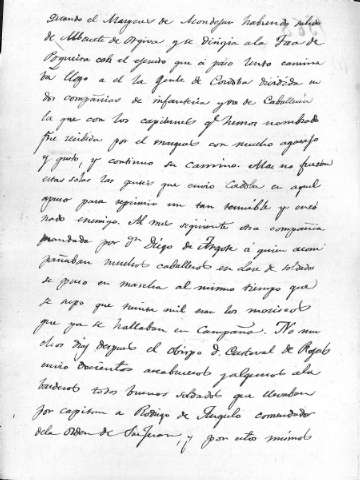 Quando el Marques de Mondejar habiendo salido
de Albacete de Orgiva y se dirigia a la Taa de
Poqueira con el ejercito que a paso lento camina
ba llego a el la gente de Cordoba dividida en
dos compañias de infanteria y una de Caballeria
la que con los capitanes qe hemos nombrado
fue recibida por el marques con mucho agasajo
y gusto, y continuo su camino. Mas no fueron
estas solas las gentes que envio Cordoba en aquel
apuro para reprimir un tan terrible y enco
nado enemigo. Al mes siguiente otra compañia
mandada por Dn Diego de Argote a quien acom
pañaban muchos caballeros en clase de soldados
se puso en marcha al mismo tiempo que
se supo que mil eran los moriscos
que ya se hallaban en Campaña. No mu
chos dias despues el obispo D. Cristoval de Rojas
envio doscientos arcabuceros y algunos ala
barderos todos buenos soldados que llevaban
por capitan a Rodrigo de comendador
de la Orden de San Juan, y por estos mismos